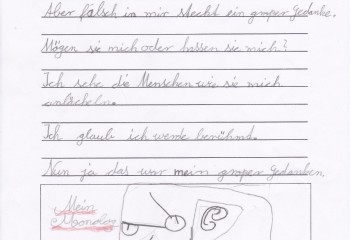 Aber falsch in mir steckt ein großer Gedanke.
Mögen sie mich oder hassen sie mich?
Ich sehe die Menschen wie sie mich
anlächeln.
Ich glaub ich werde berühmd.
Nun ja das war mein großer Gedanken
Mein
Moonolog